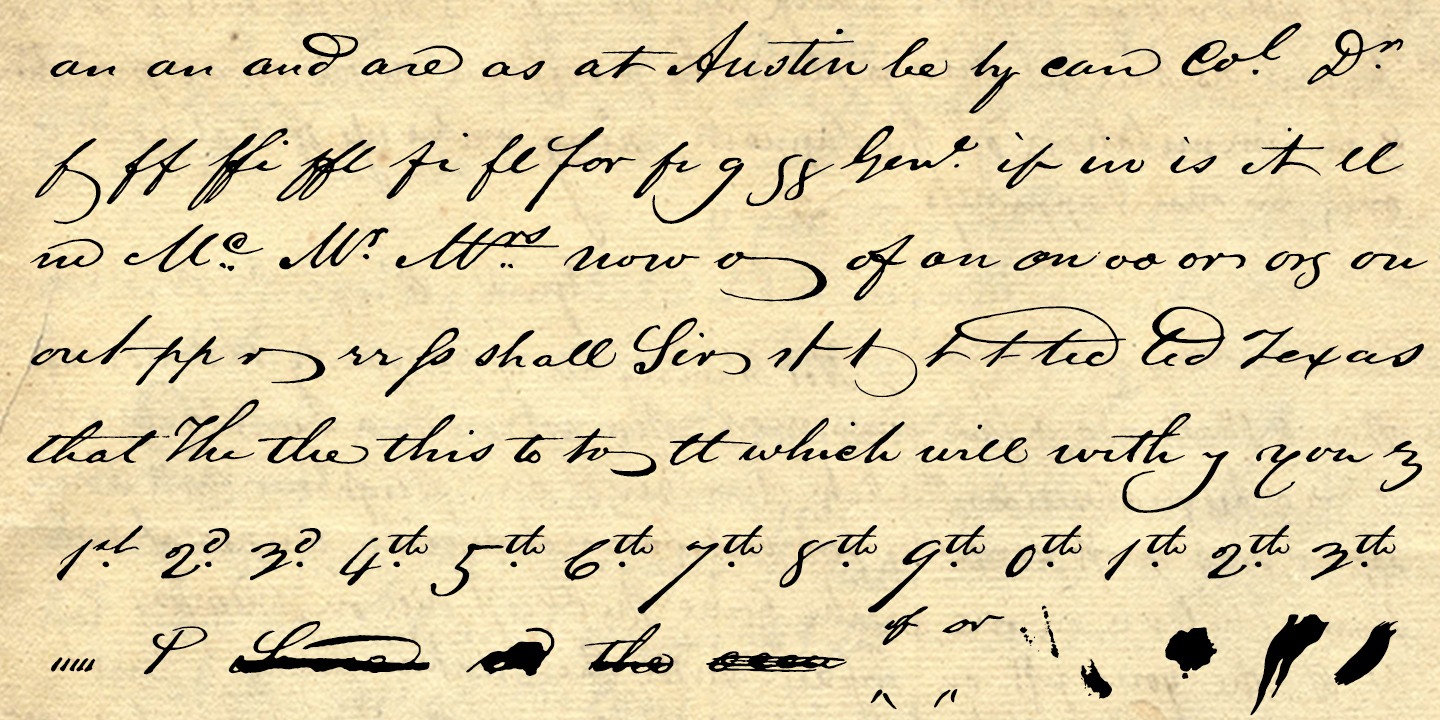 an an and are as at Austin be by can Co.l D.r
f ff ffi ffl fi fl for fr g gg Gen.l if in is it ll
m M.c M.r M.rs now o of an on oo or org ou
out pp r rr ss shall Sir st t t t ted ted Texas
that The the this to to tt which will with y you z
1.st 2.d 3.d 4.th 5.th 6.th 7.th 8.th 9.th 0.th 1.th 2.th 3.th
of or
the
" "